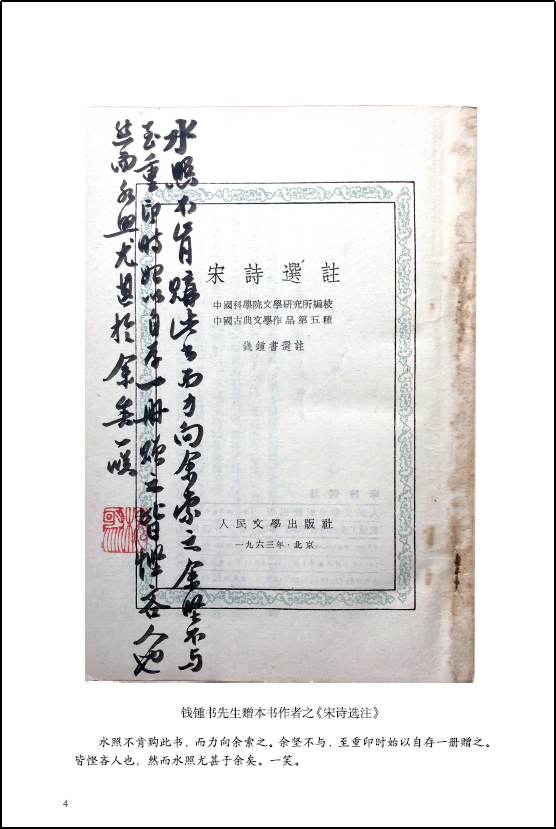 水照不肯購此書而力向余索之余堅不与
至重印時始以自存一册贈之皆慳吝人也
然而水照尤甚於余矣一咲
宋詩選註
中國科學院文學研究所編校
中國古典文學作品第五種
錢鍾書選註
人民文學出版社
一九六三年·北京
钱锺书先生赠本书作者之《宋诗选注》
水照不肯购此书，而力向余索之。余坚不与，至重印时始以自存一册赠之。
皆悭吝人也，然而水照尤甚于余矣。一笑。
4